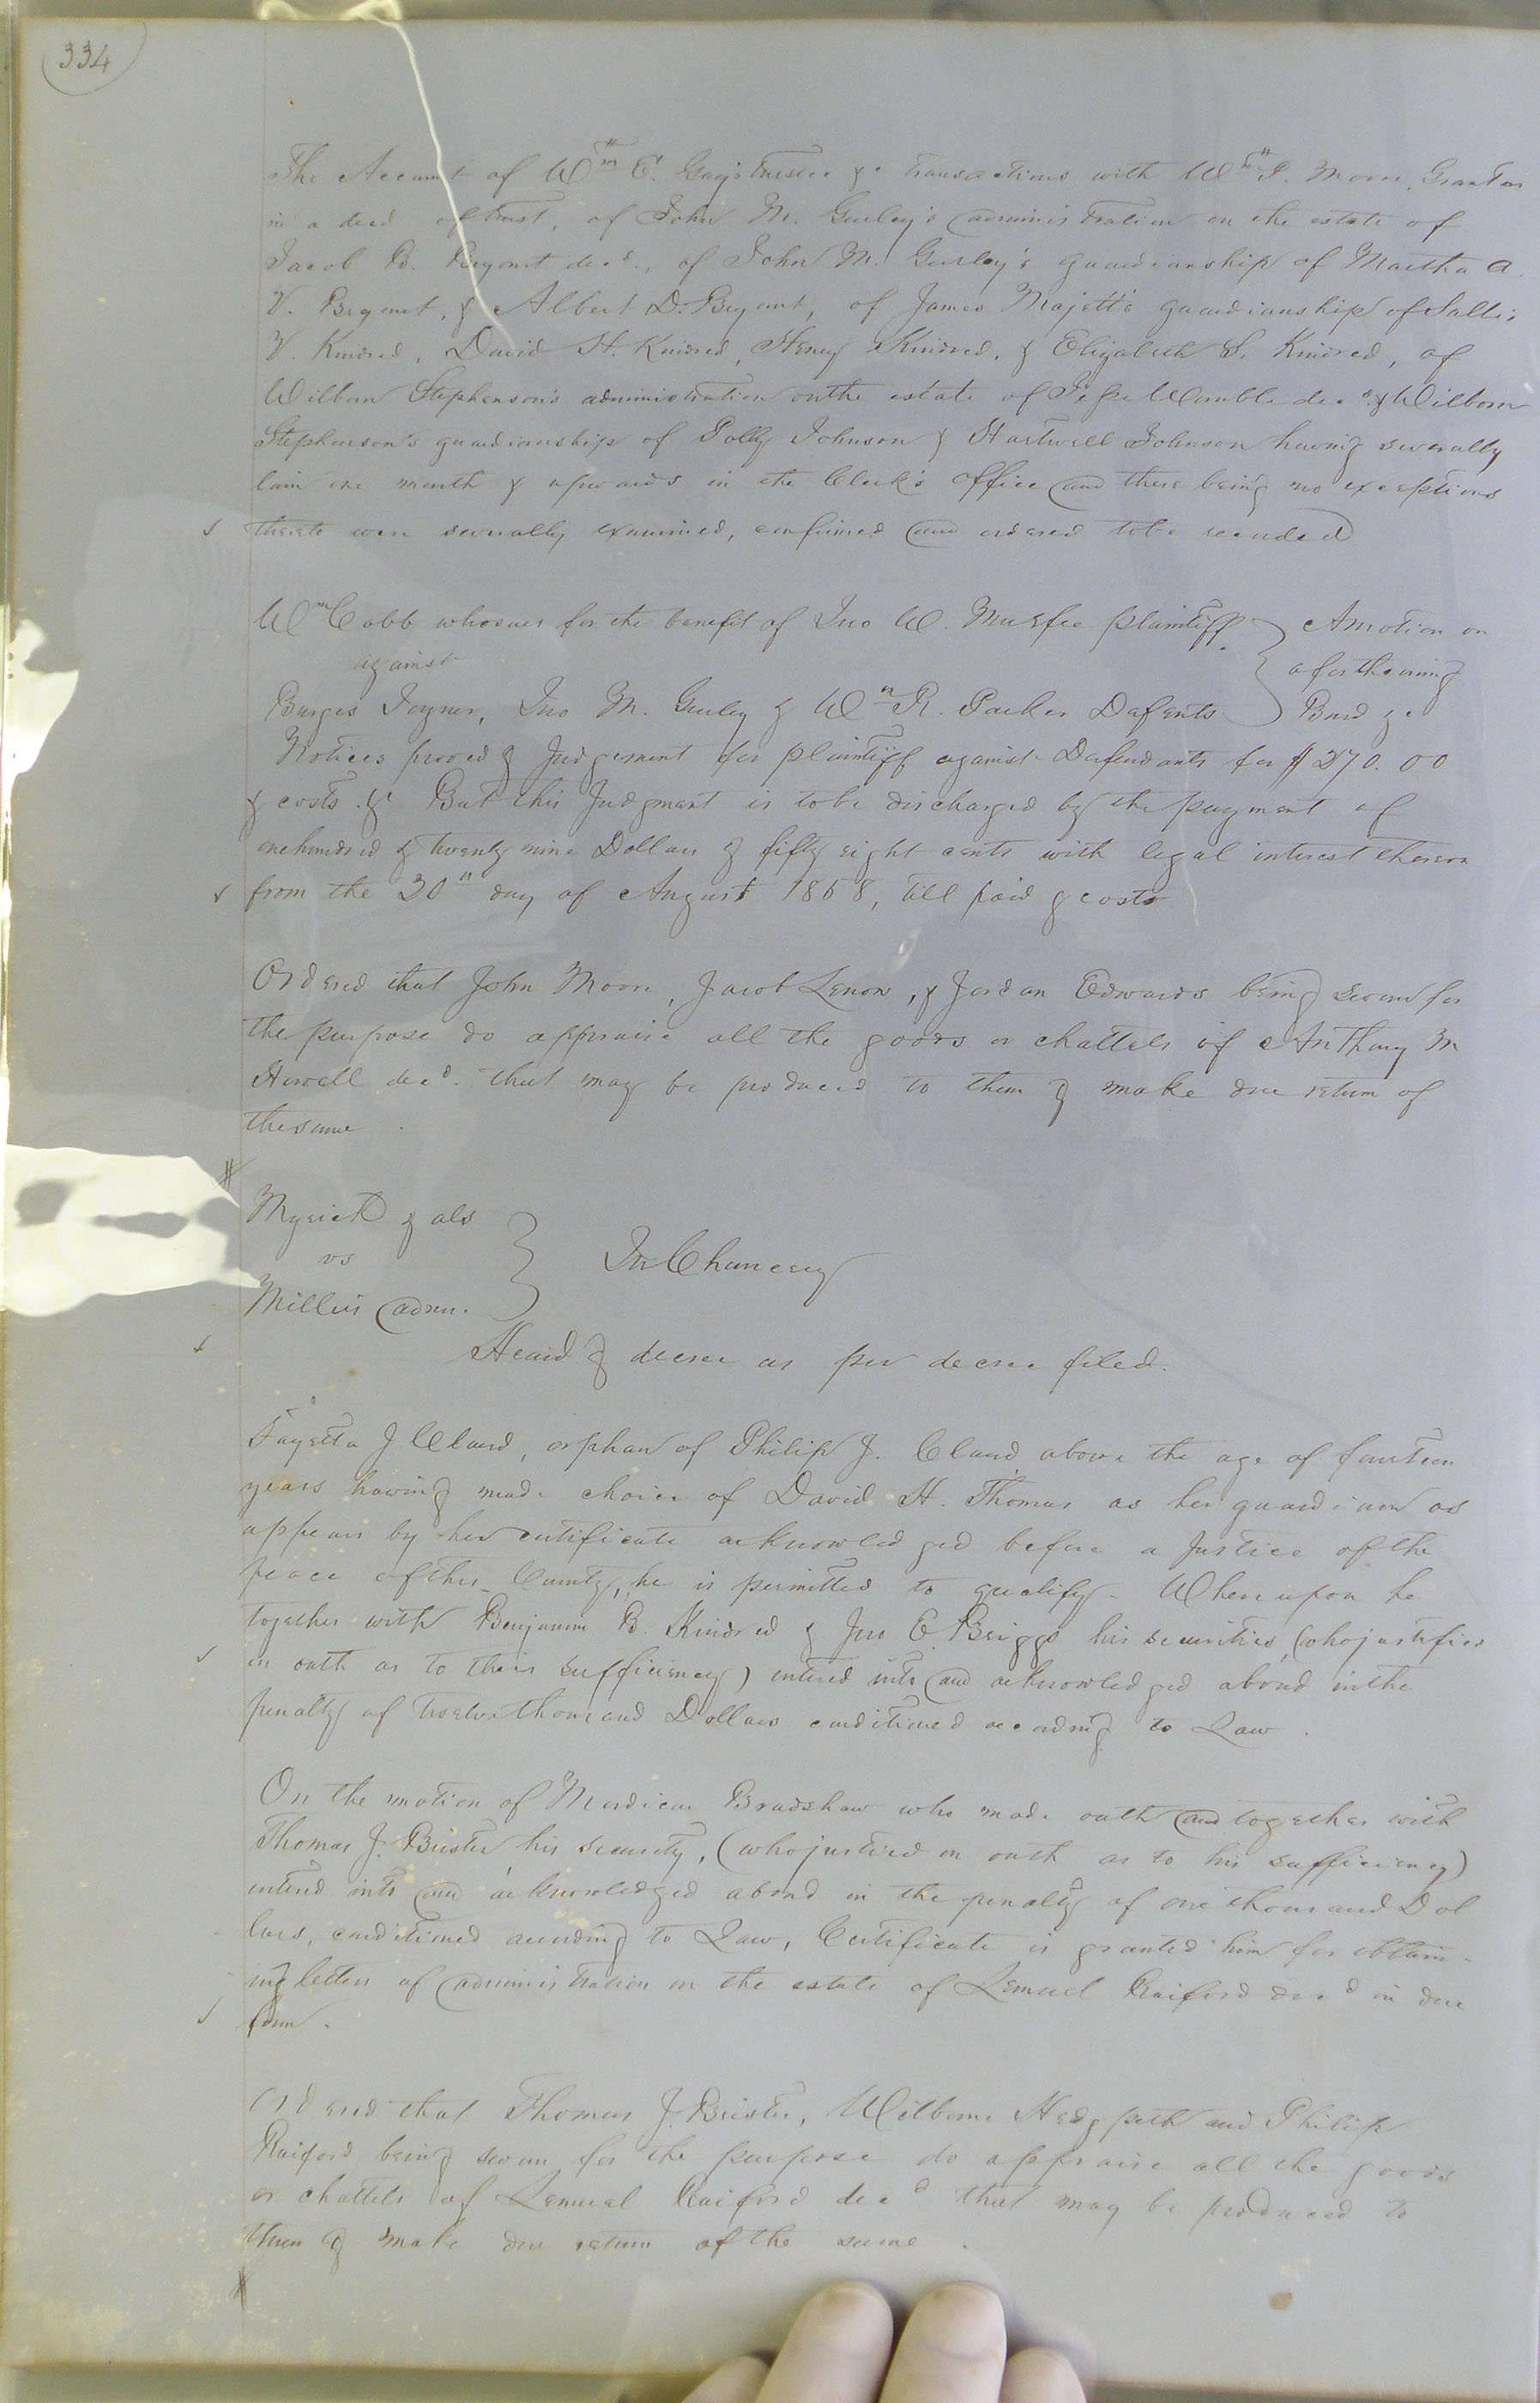 334
The Account of Wm E. Gay's trustee &c transactions with Wm P. Moore, Grantor
in a deed of trust, of John M. Gurley's administration on the estate of
Jacob B. Bryant decd., of John M. Gurley's guardianship of Martha A.
V. Bryant, & Albert D. Bryant, of James Majett's guardianship of Sallie
V. Kindred, David H. Kindred, Henry Kindred, & Elizabeth S. Kindred, of
Wilborn Stephenson's administration on the estate of Jesse Womble decd & Wilborn
Stephenson's guardianship of Polly Johnson & Hartwell Johnson having severally
lain one month & upwards in the Clerk's office and there being no exceptions
thereto were severally examined, confirmed and ordered to be recorded
Wm Cobb who sues for the benefit of Jno W. Murfee plaintiff
against
Burges Joyner, Jno M. Gurley & Wm R. Parker Defents
A motion on
a forthcoming
Bond &c
Notices proved & Judgement for plaintiff against Defendants for $270.00
& costs. &c But this Judgment is to be discharged by the payment of
one hundred & twenty nine Dollars & fifty eight cents with legal interest thereon
from the 30th day of August 1858, till paid & costs
Ordered that John Moore, Jacob Lenow, & Jordan Edwards being sworn for
the purpose do appraise all the goods or chattels of Anthony M
Howell decd. that may be produced to them & make due return of
the same.
Myrick & als
vs
Millers admr.
In Chancery
Heard & decree as per decree filed.
Fayetta J Claud, orphan of Philip J. Claud above the age of fourteen
years having made choice of David H. Thomas as her guardian as
appears by her certificate acknowledged before a Justice of the
peace of this County, he is permitted to qualify. Whereupon he
together with Benjamin B. Kindred & Jno E. Briggs his securities (who justifies
on oath as to their sufficiency) entered into and acknowledged a bond in the
penalty of twelve thousand Dollars conditioned according to Law.
On the motion of Mordicai Bradshaw who made oath and together with
Thomas J. Brister his security, (who justied on oath as to his sufficiency)
entered into and acknowledged a bond in the penalty of one thousand Dol
lars, conditioned according to Law, Certificate is granted him for obtain-
ing letters of administration on the estate of Lemuel Raiford decd in due
form.
Ordered that Thomas J. Brister, Wilborne Hedgpeth and Philip
Raiford being sworn for the purpose do appraise all the goods
or chattels of Lemuel Raiford decd that may be produced to
them & make due return of the same.